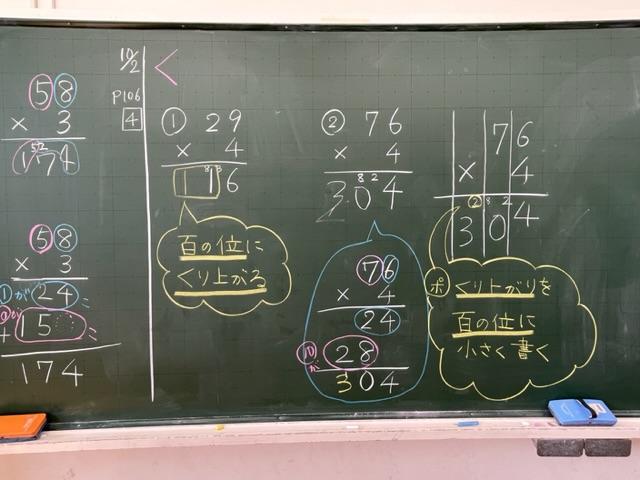 58
× 3
174
58
× 3
①が 24
+ 15
174
10/2
P106
4
く
① 29
× 4
116
百の位に
くり上がる
② 76
× 4
8 2
304
76
× 4
24
⑩が 28
304
76
× 4
② 8 2
304
ポ くり上がりを
百の位に
小さく書く